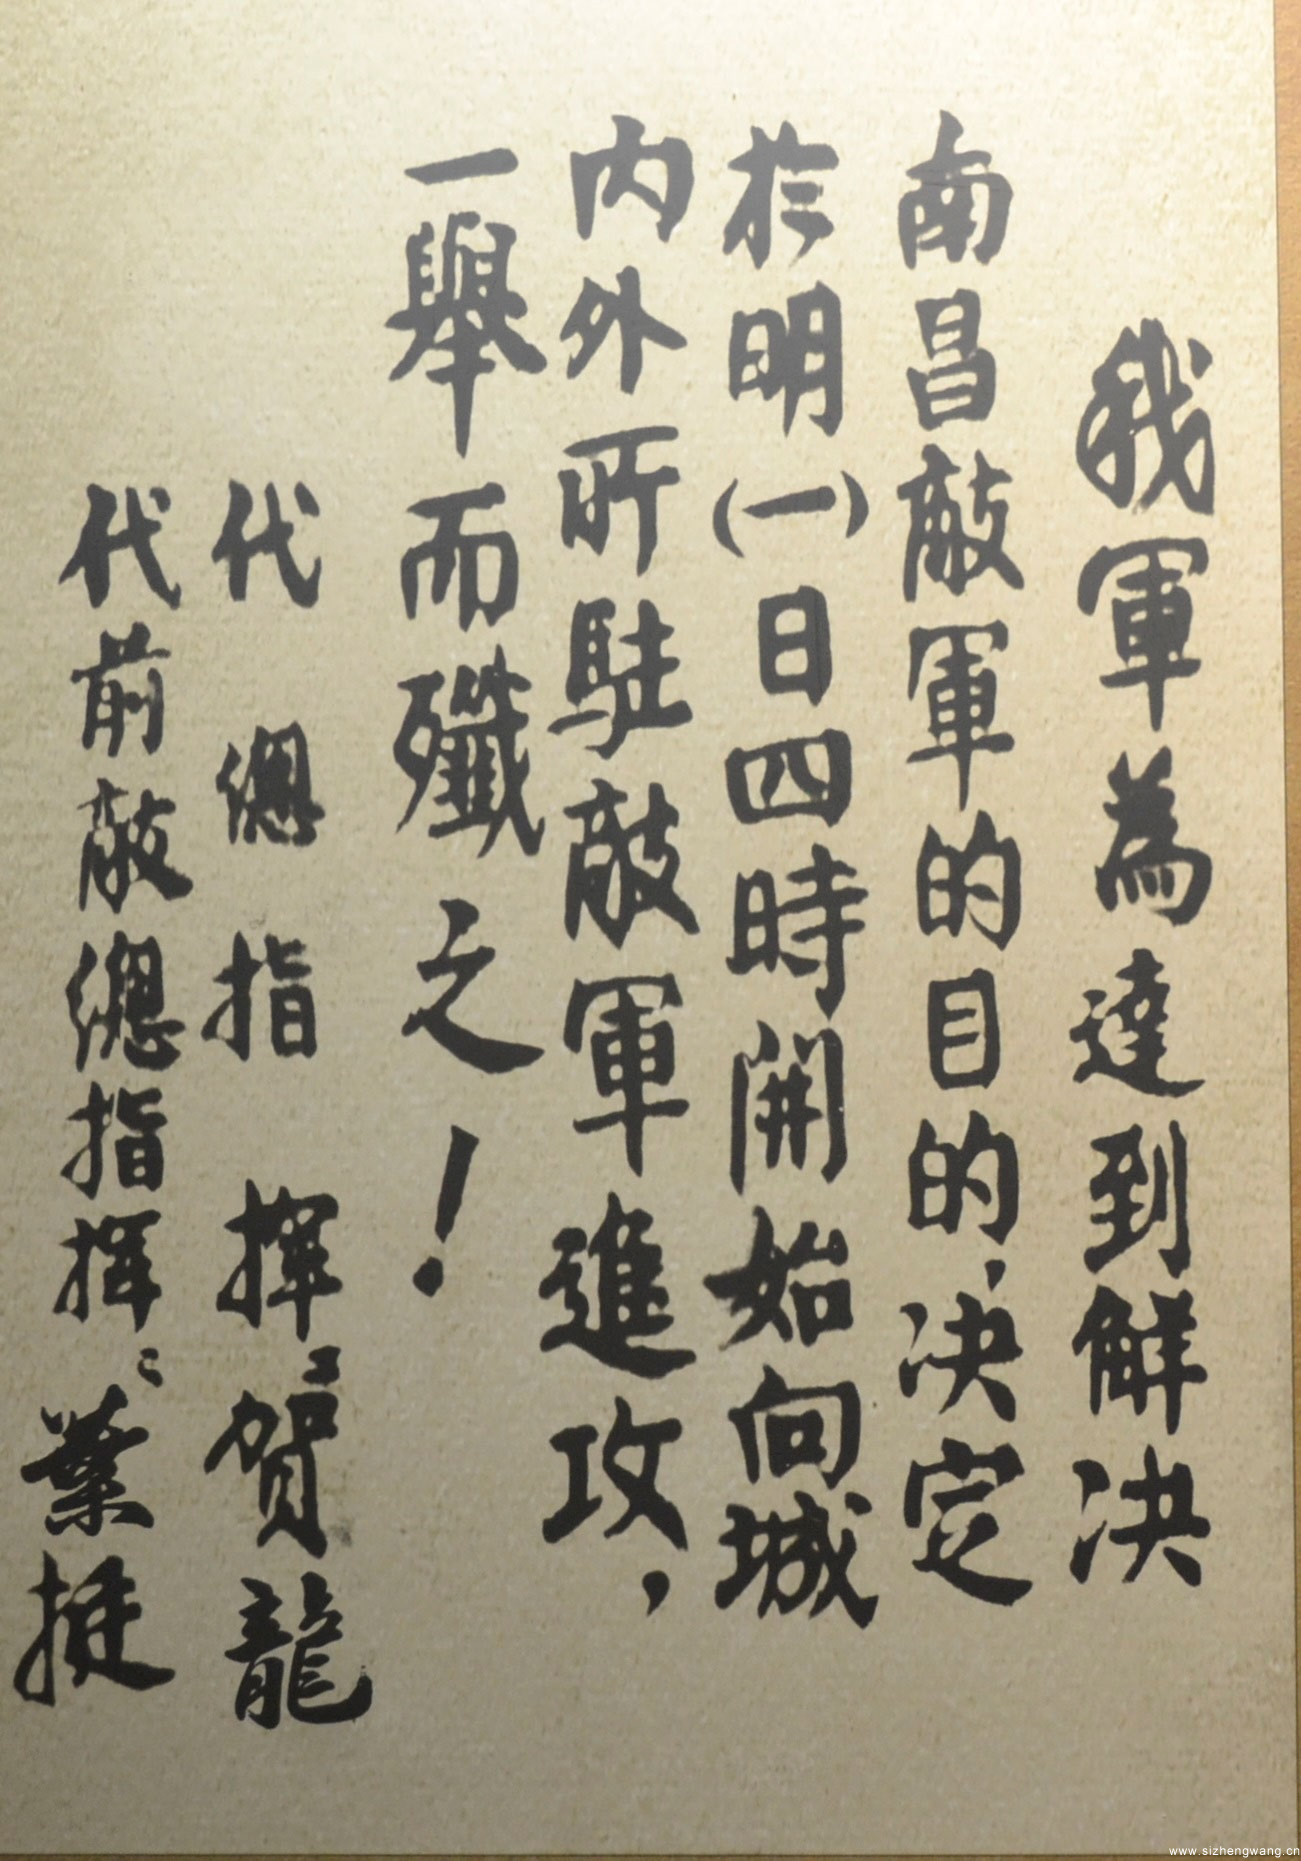 我軍為達到解决
南昌敵軍的目的，决定
於明（一）日四時開始向城
内外所駐敵軍進攻，
一舉而殲之！
代總指揮：賀龍
代前敵總指揮：葉挺
www.sizhengwang.cn